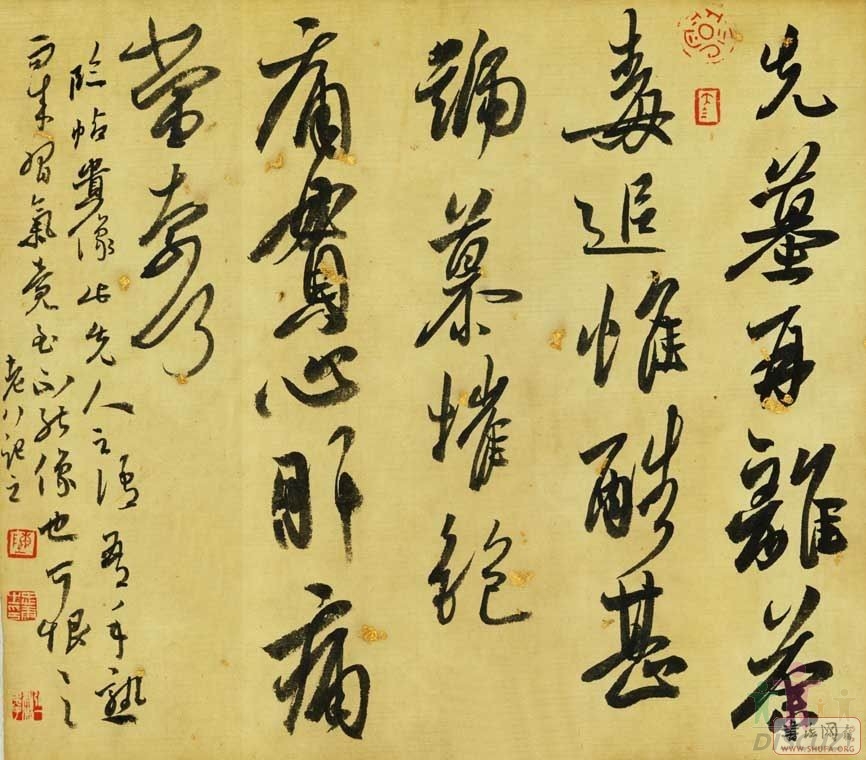 先墓再離荼
毒追惟酷甚
號慕摧絕
痛貫心肝痛
當奈何
臨帖貴像此先人之語吾手熟
而來習氣竟至不能像也可恨
老八記之
書法网
WWW.SHUFA.ORG